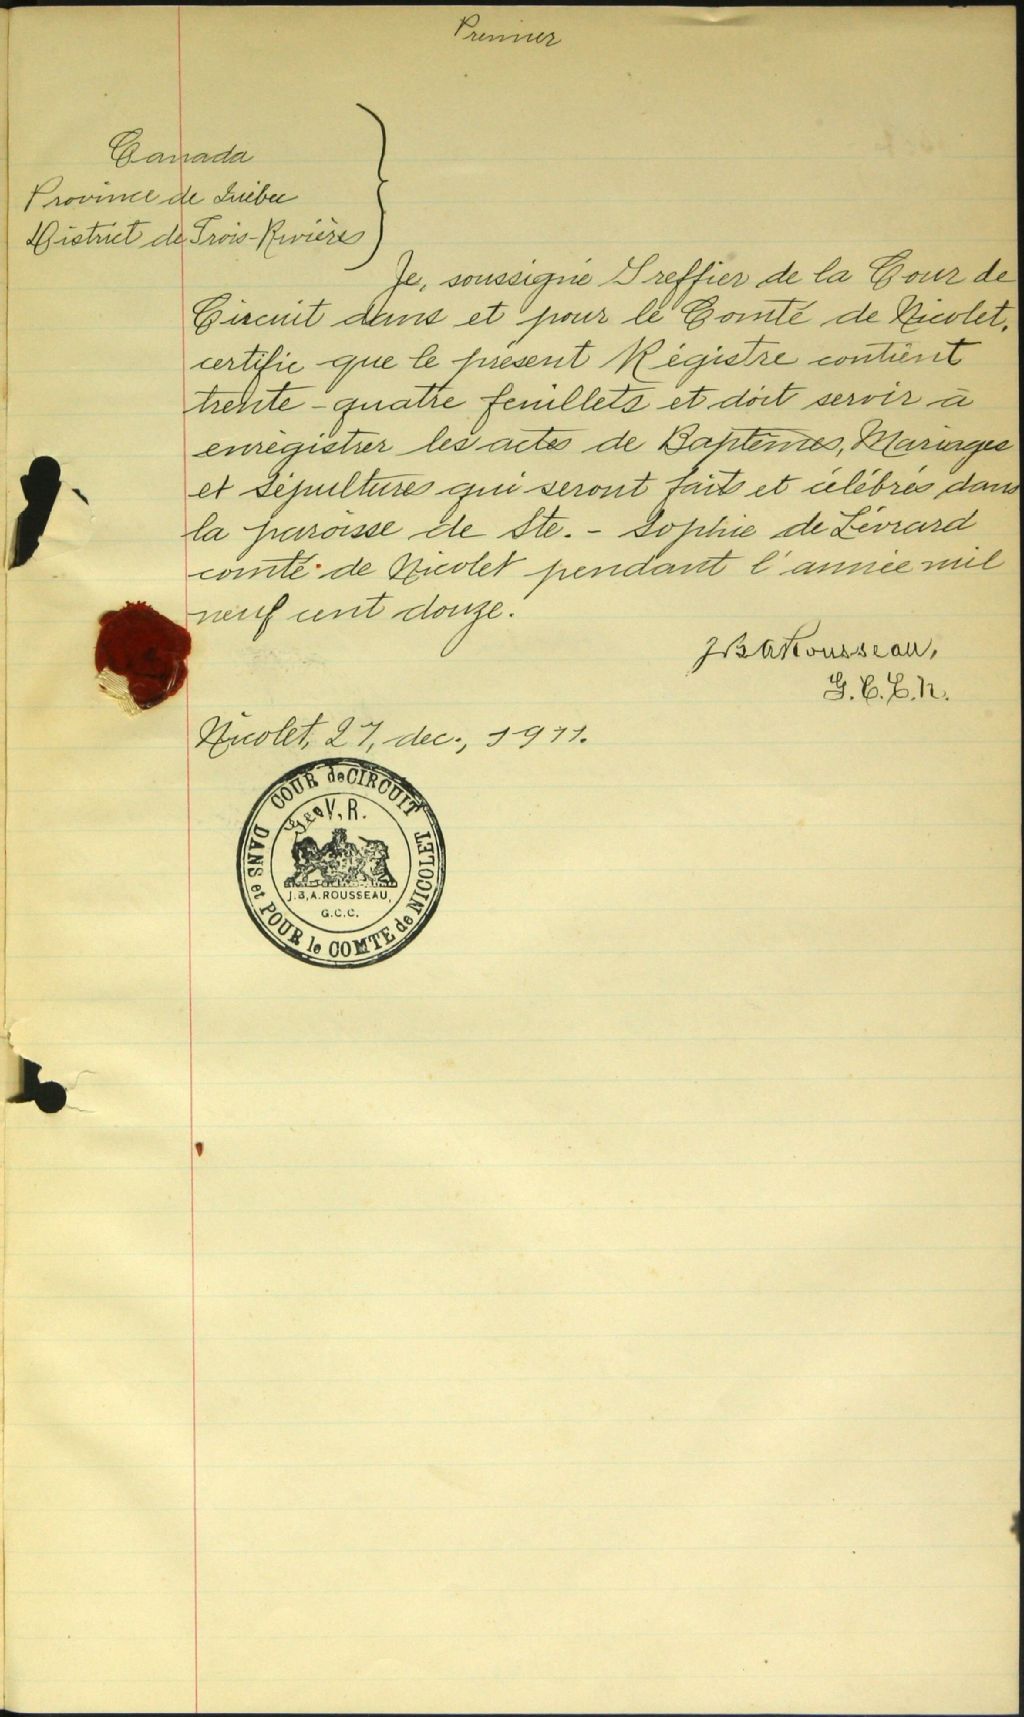 Premier
Canada
Province de Québec
District de Trois-Rivières
Je, soussigné Greffier de la Cour de
Circuit dans et pour le Comté de Nicolet,
certifie que le présent Régistre contient
trente-quatre feuillets et doit servir à
enrégistrer les actes de Baptêmes, Mariages
et Sépultures qui seront faits et célébrés dans
la paroisse de Ste.-Sophie de Lévrard
comté de Nicolet pendant l'année mil
neuf cent douze.
JBARousseau,
G.C.C.N.
Nicolet, 27, dec., 1911.
COUR de CIRCUIT
DANS et POUR le COMTE de NICOLET
Geo V. R.
J.B.A. ROUSSEAU,
G.C.C.